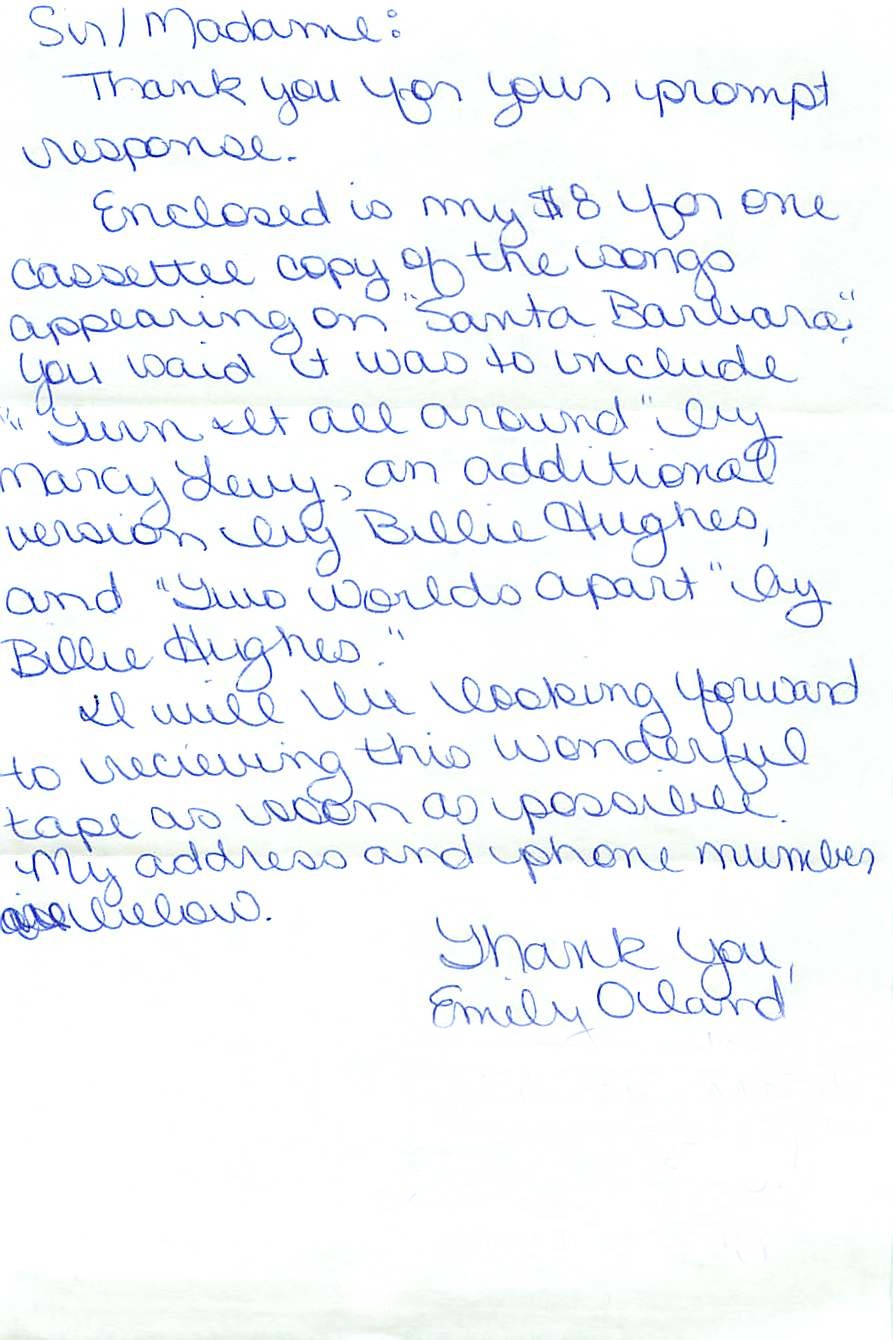 Sir/Madame:
Thank you for your prompt
response.
Enclosed is my $8 for one
cassettee copy of the songs
appearing on "Santa Barbara."
You said it was to include
"Turn It all around" by
Marcy Levy, an additional
version by Billie Hughes,
and "Two Worlds apart" by
Billie Hughes."
I will be looking forward
to recieving this wonderful
tape as soon as possible.
My address and phone number
are below.
Thank You,
Emily Oland